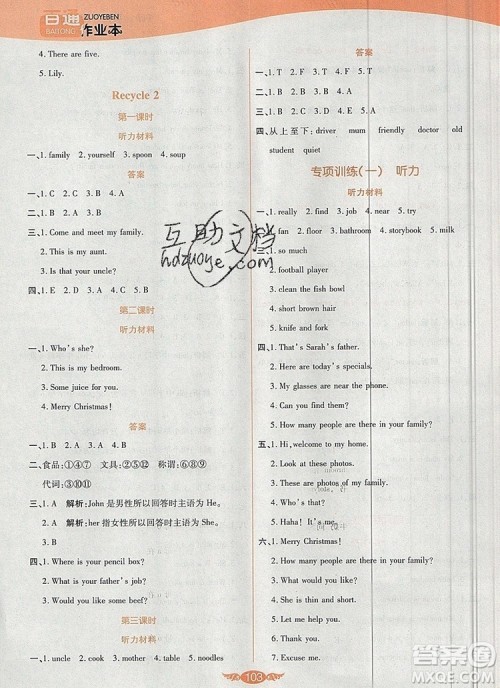 百通
BAITONG
ZUOYEBEN
作业本
4. There are five.
5. Lily.
Recycle 2
第一课时
听力材料
一、1. family 2. yourself 3. spoon 4. soup
答案
一、1. B 2. A 3. B 4. B
二、1. C 2. B 3. A 4. A 5. B
三、1. Come and meet my family.
2. This is my aunt.
3. Is that your uncle?
四、1. E 2. D 3. A 4. C 5. B
第二课时
听力材料
一、1. Who's she?
2. This is my bedroom.
3. Some juice for you.
4. Merry Christmas!
答案
一、1. B 2. A 3. A 4. B
二、食品:①④⑦ 文具:②⑤⑫ 称谓:⑥⑧⑨
代词:③⑩⑪
三、1. A 解析:John 是男性所以回答时主语为 He。
2. A 解析:her 指女性所以回答时主语为 She。
四、1. Where is your pencil box?
2. What is your father's job?
3. Would you like some beef?
第三课时
听力材料
一、1. uncle 2. cook 3. table 4. noodles
答案
一、1. C 2. A 3. C 4. B
二、1. T 2. F 3. F 4. T
三、1. C 2. E 3. A 4. D 5. B
四、从上至下: driver mum friendly doctor old
student quiet
专项训练(一) 听力
听力材料
一、1. really 2. find 3. job 4. near 5. they
二、1. fan 2. floor 3. bathroom 4. storybook 5. milk
三、1. so much
2. football player
3. clean the fish bowl
4. short brown hair
5. knife and fork
四、1. That's Sarah's father.
2. What would you like?
3. My glasses are near the phone.
4. Can you find them?
5. How many people are there in your family?
五、1. Hi, welcome to my home.
2. Look at these photos.
3. These are photos of my family.
4. Who's that?
5. Haha! It's me.
六、1. Merry Christmas!
2. How many people are there in your family?
3. Who's that man?
4. She is thin and short.
5. What would you like?
6. Thank you.
7. Excuse me.
互助文档
hdzuoye.com
103
答案圈
MXQE.COM